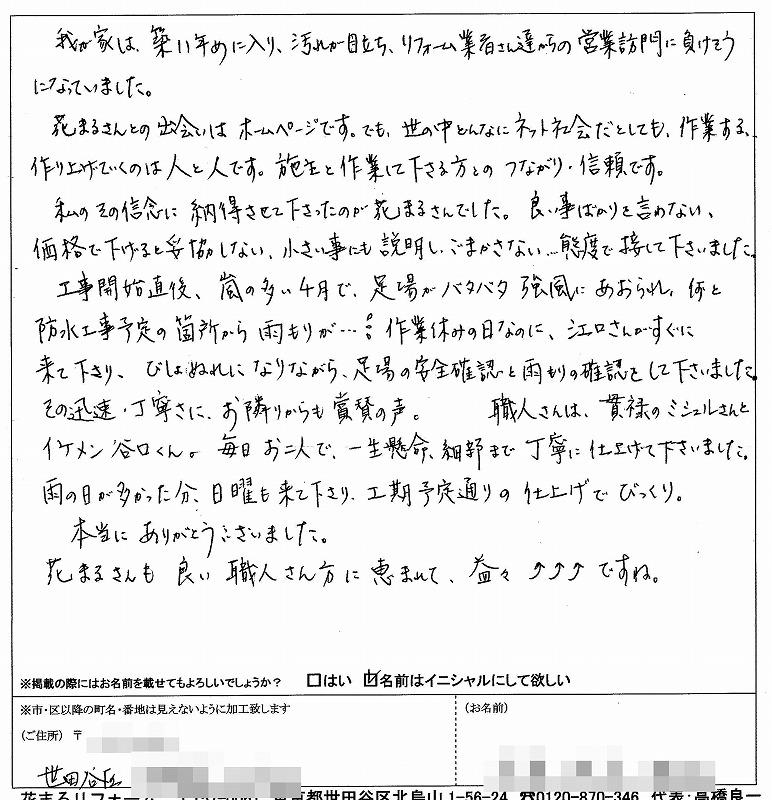 我が家は、築11年めに入り、汚れが目立ち、リフォーム業者さん達からの営業訪問に負けそう
になっていました。
花まるさんとの出会いはホームページです。でも、世の中どんなにネット社会だとしても、作業する、
作り上げていくのは人と人です。施主と作業して下さる方とのつながり・信頼です。
私のその信念に納得させて下さったのが花まるさんでした。良い事ばかりを言わない、
価格で下げると妥協しない、小さい事にも説明し、ごまかさない…態度で接して下さいました。
工事開始直後、嵐の多い4月で、足場がバタバタ強風にあおられ、何と
防水工事予定の箇所から雨もりが… 作業休みの日なのに、江口さんがすぐに
来て下さり、びしょぬれになりながら、足場の安全確認と雨もりの確認をして下さいました。
その迅速・丁寧さに、お隣りからも賞賛の声。 職人さんは、貫禄のミシェルさんと
イケメン谷口くん。毎日お二人で、一生懸命、細部まで丁寧に仕上げて下さいました。
雨の日が多かった分、日曜も来て下さり、工期予定通りの仕上げでびっくり。
本当にありがとうございました。
花まるさんも良い職人さん方に恵まれて、益々⤴⤴⤴ですね。
※掲載の際にはお名前を載せてもよろしいでしょうか? □はい ☑名前はイニシャルにして欲しい
※市・区以降の町名・番地は見えないように加工致します
(お名前)
(ご住所) 〒
世田谷区
花まるリフォーム 東京都世田谷区北烏山1-56-24 ☎0120-870-346 代表:高橋良一